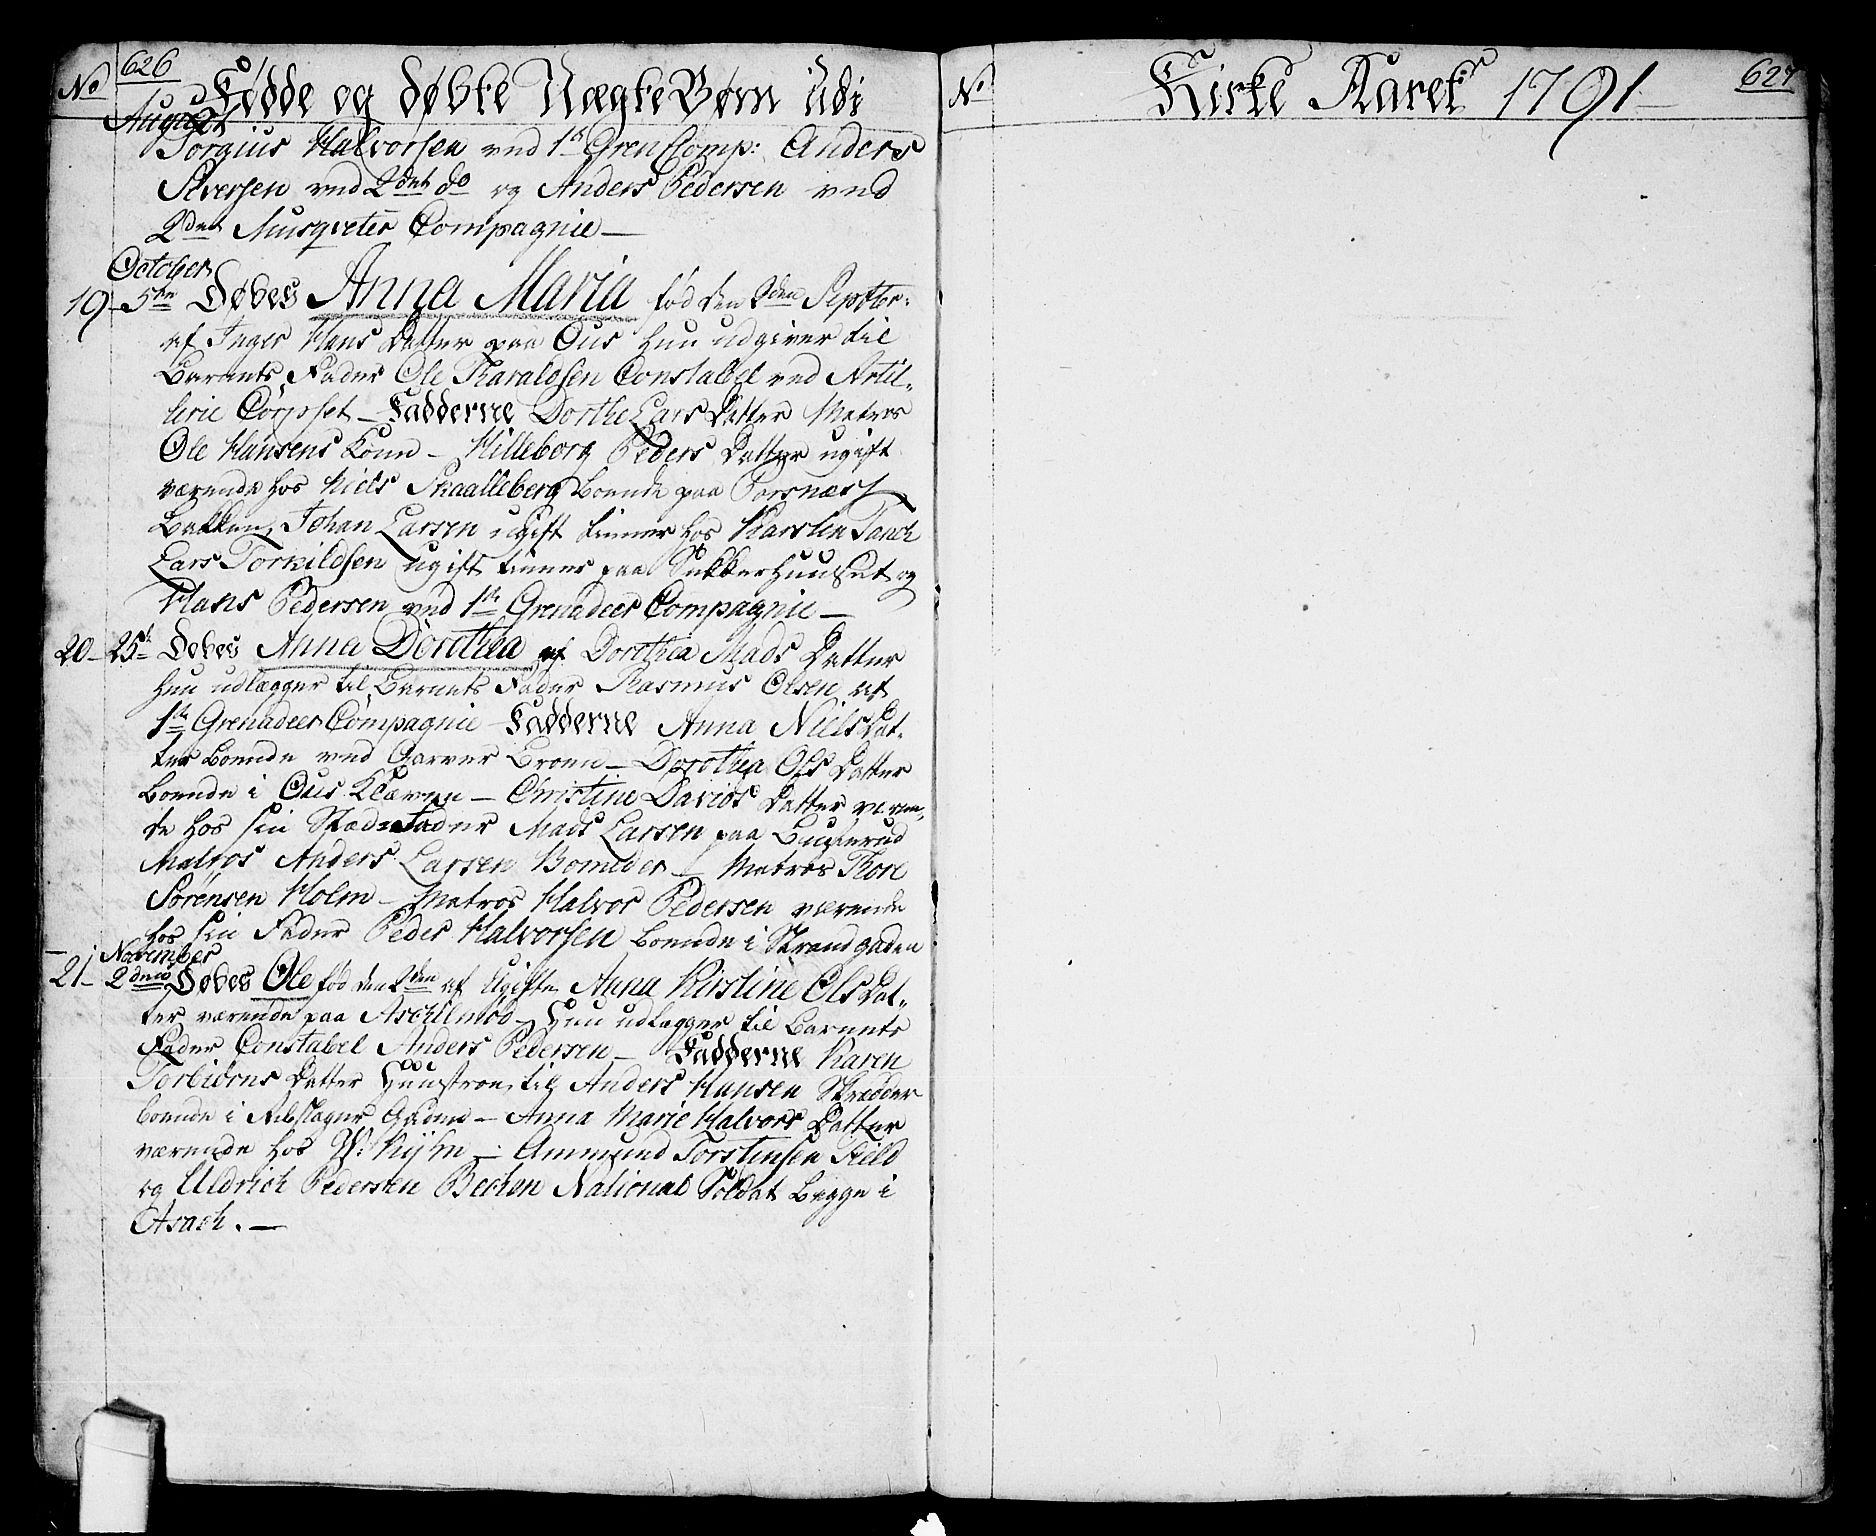 No 626 Fødde og døbte Uægte Børn Udi
August
Torgius Halvorsen ved 1st Gren Comp: Anders
Siversen ved 2det do og Anders Pedersen ved
2det Musqveter Compagnie —
October
19 - 5te Døbes Anna Maria fød den 2den Septbr:
af Inger Hans Datter paa Ous hun udgiver til
Barnets Fader Ole Haraldsen Constabel ved Artil-
lerie Corpset — Fadderne Dorthe Lars Datter Matros
Ole Hansens Kone — Hilleborg Peders Datter ugift
værende hos Niels Skaalleberg Boende paa Porsnæs
Bakken, Johan Larsen ugift tiener hos Karsten Tanck
Lars Torkildsen ugift tiener paa Sukkerhuuset og
Hans Pedersen ved 1ste Grenadeer Compagnie —
20 - 25de Døbes Anna Dorothea af Dorothea Mads Datter
hun udlægger til Barnets Fader Rasmus Olsen af
1ste Grenadeer Compagnie Fadderne Anna Niels Dat-
ter Boende ved Garver Broen — Dorothea Ols Datter
Boende i Ous Kleven — Christine Davids Datter væren-
de hos sin Sted-Fader Mads Larsen paa Buskerud
Matros Anders Larsen — Matros Thore
Sørensen Holm — Matros Halvor Pedersen værende
hos sin Fader Peder Halvorsen boende i Strandgaden
November
21 - 2den Døbes Ole fød den 2den af Ugifte Anna Kirstine Ols Dat-
ter værende paa — Hun udlægger til Barnets
Fader Constabel Anders Pedersen — Fadderne Karen
Torbiørns Datter Huustroe til Anders Hansen Skrædder
boende i Rebslager Gaden — Anna Marie Halvors Datter
værende hos — Ammund Torstensen Field
og Uldrich Pedersen National Soldat begge i
Asach. —
No Kirke Aaret 1791 — 627